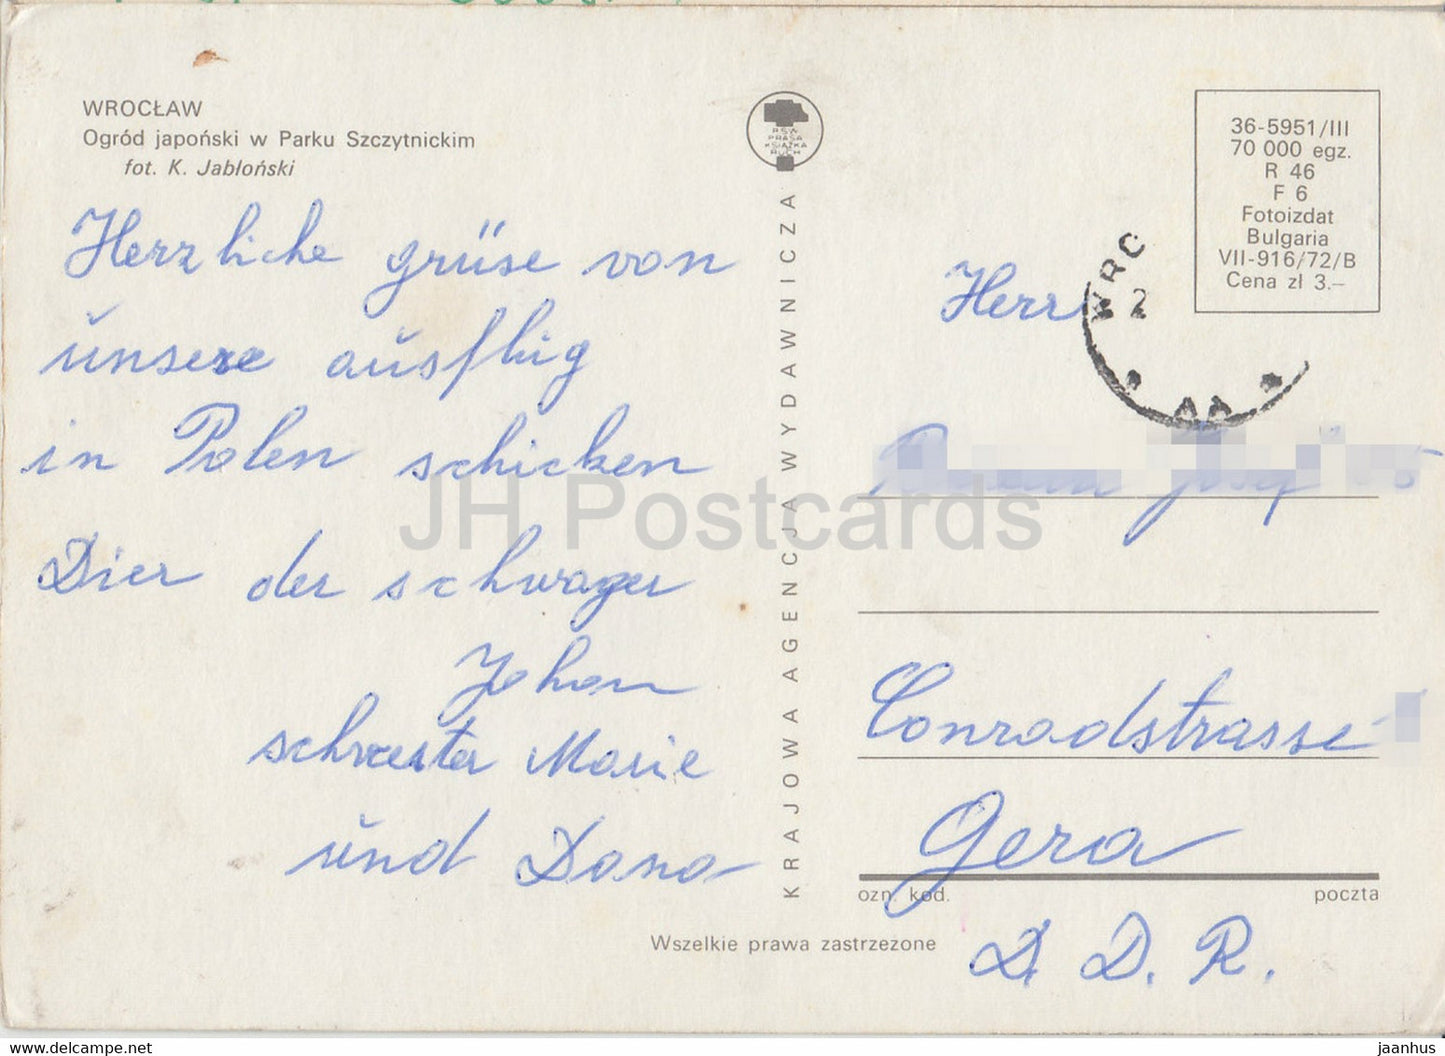 WROCŁAW
Ogród japoński w Parku Szczytnickim
fot. K. Jabłoński
Herzliche grüse von
ŭnsere aŭsflŭg
in Polen schicken
Dier der schwager
Johan
schwester Marie
ŭnd Dana
RSW
PRASA
KSIĄŻKA
RUCH
KRAJOWA AGENCJA WYDAWNICZA
36-5951/III
70 000 egz.
R 46
F 6
Fotoizdat
Bulgaria
VII-916/72/B
Cena zł 3.–
WROC
2
Herr
Josef
Conradstrasse
Gera
ozn. kod.
poczta
D. D. R.
Wszelkie prawa zastrzeżone
JH Postcards
www.delcampe.net
jaanhus